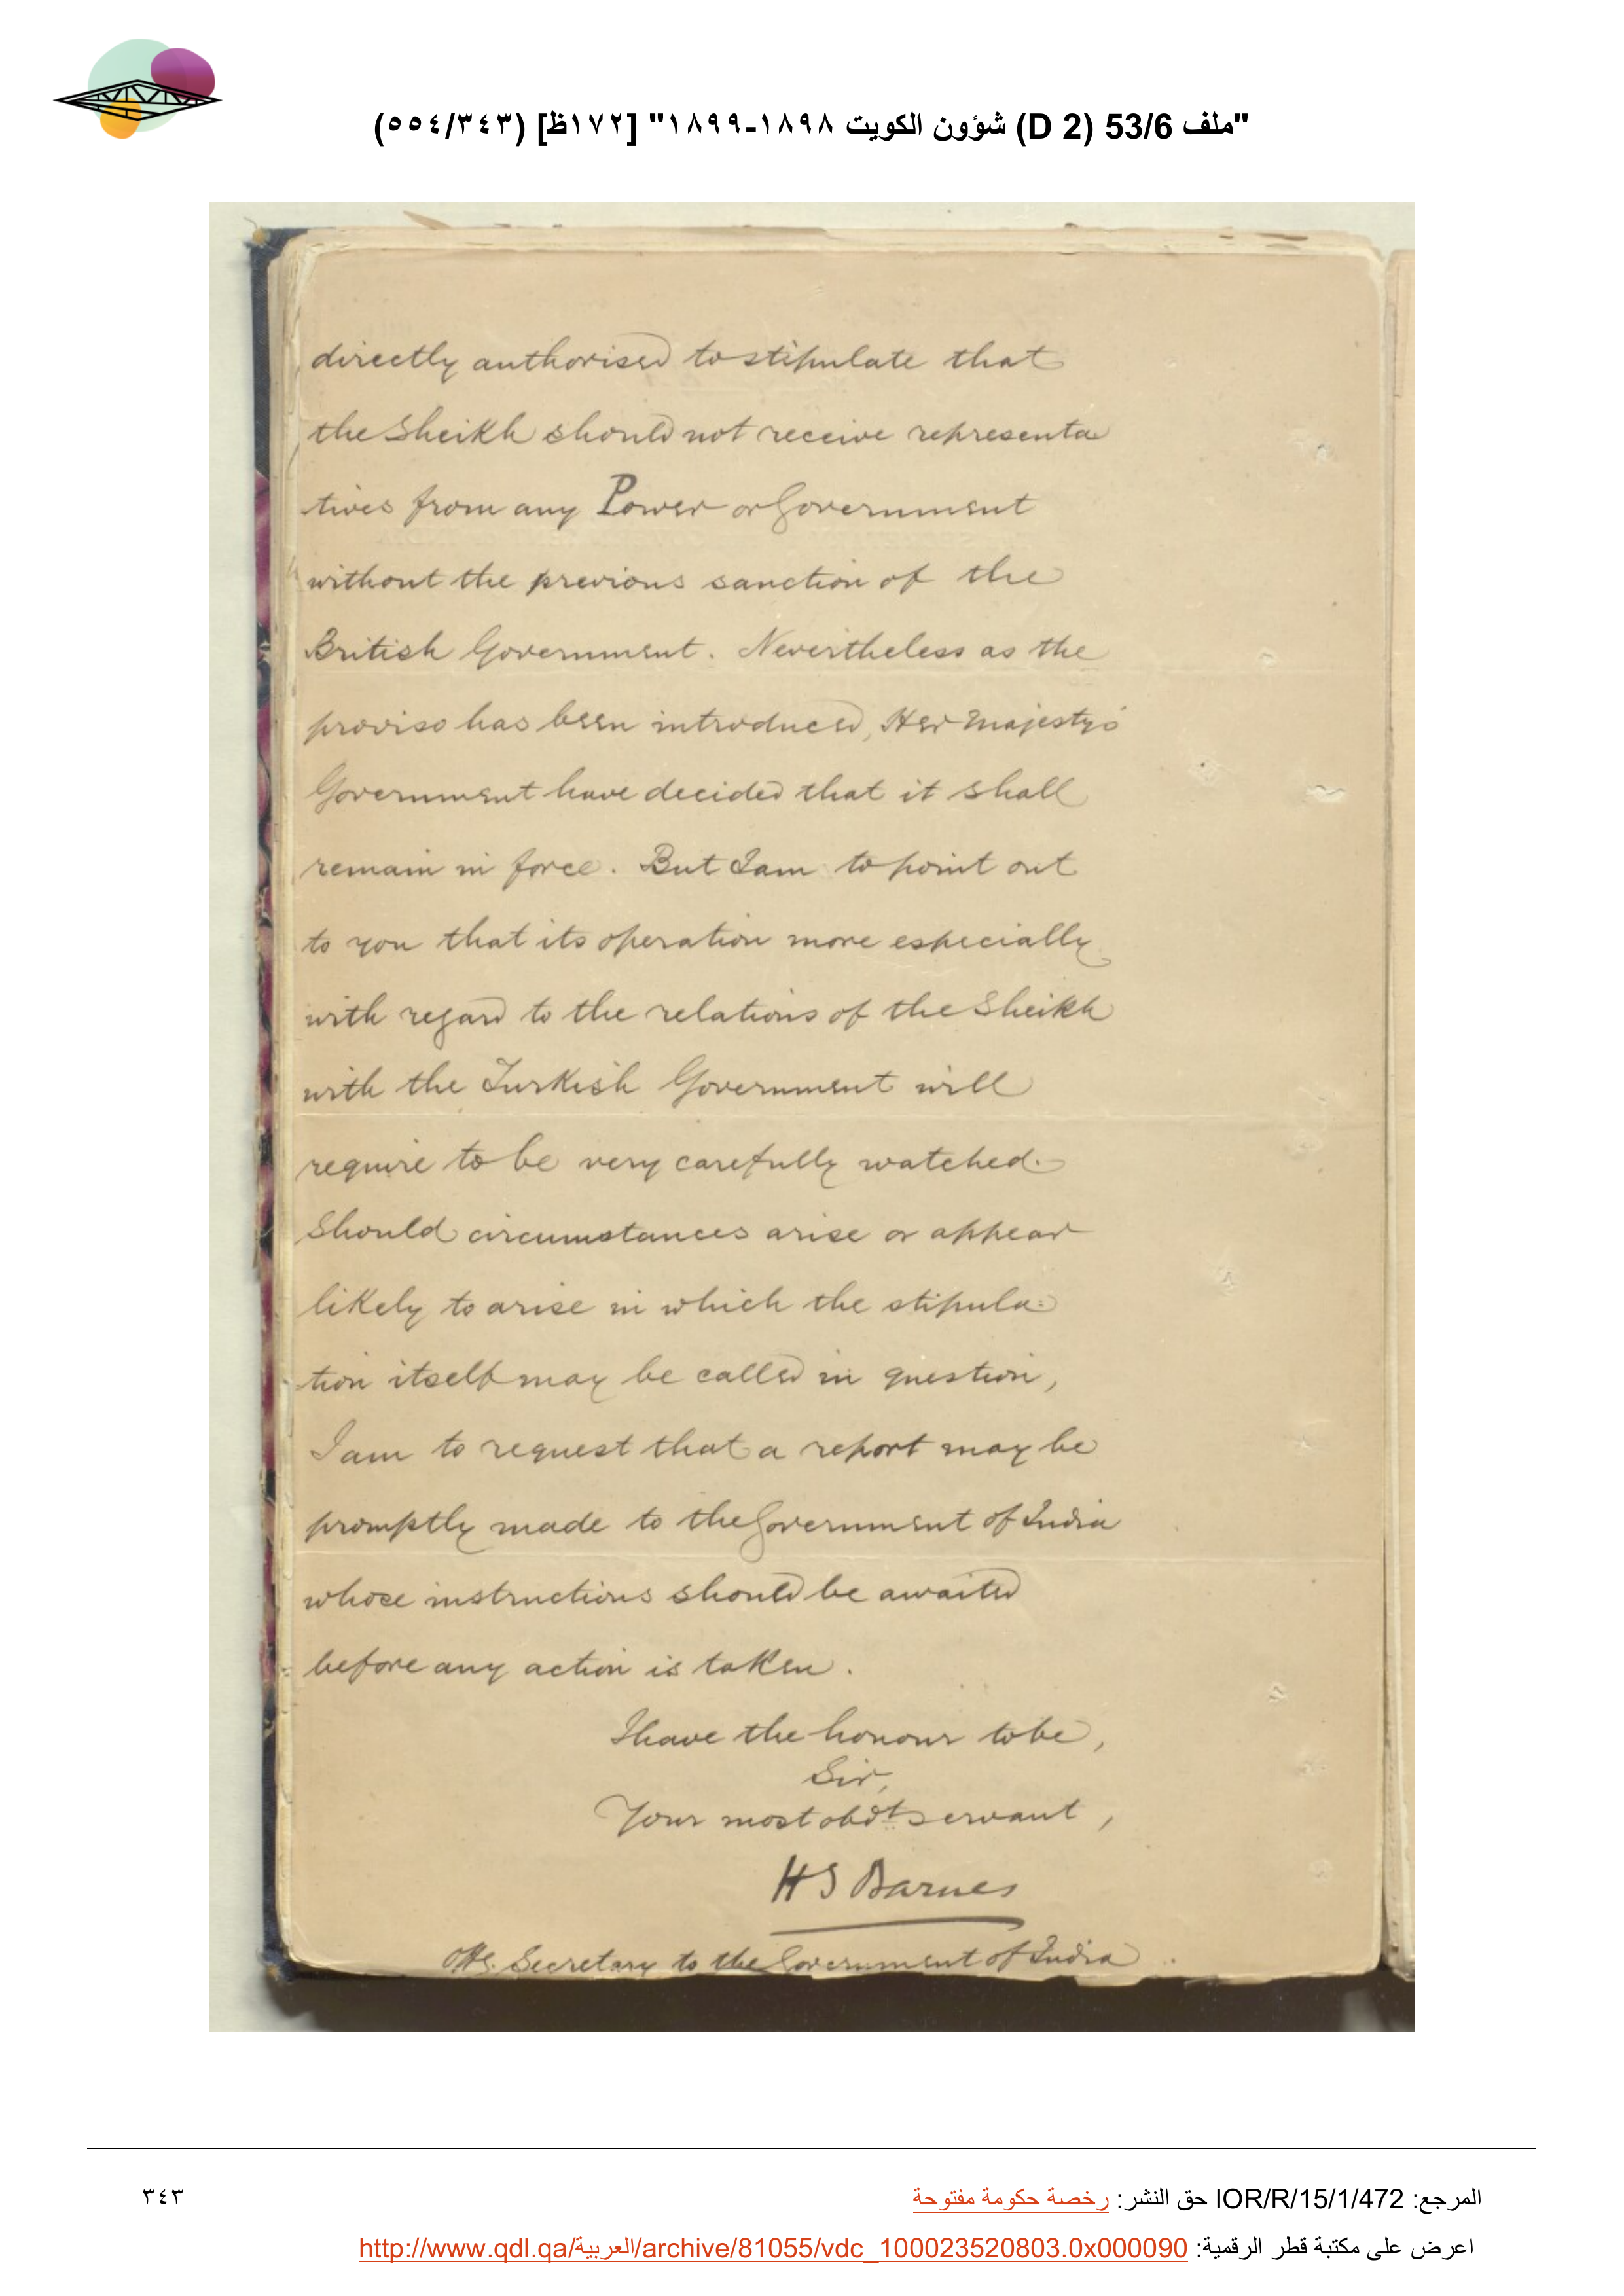 "ملف 53/6 (D 2) شؤون الكويت ١٨٩٨-١٨٩٩" [١٧٢ظ] (٥٥٤/٣٤٣)
directly authorised to stipulate that
the Sheikh should not receive representa
tives from any Power or Government
without the previous sanction of the
British Government. Nevertheless as the
proviso has been introduced, Her Majesty's
Government have decided that it shall
remain in force. But I am to point out
to you that its operation more especially
with regard to the relations of the Sheikh
with the Turkish Government will
require to be very carefully watched.
Should circumstances arise or appear
likely to arise in which the stipula-
tion itself may be called in question,
I am to request that a report may be
promptly made to the Government of India
whose instructions should be awaited
before any action is taken.
I have the honour to be,
Sir,
Your most obdt servant,
H S Barnes
Offg. Secretary to the Government of India
المرجع: IOR/R/15/1/472 حق النشر: رخصة حكومة مفتوحة
٣٤٣
اعرض على مكتبة قطر الرقمية: http://www.qdl.qa/العربية/archive/81055/vdc_100023520803.0x000090